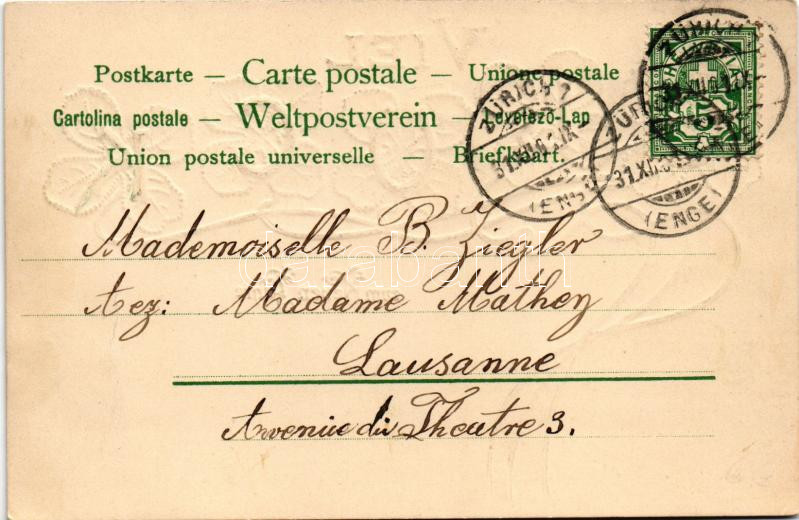 Postkarte — Carte postale — Unione postale
Cartolina postale — Weltpostverein — Levelező-Lap
Union postale universelle — Briefkaart.
ZÜRICH 7
31.XII.0
(ENGE)
31.XII.0
(ENGE)
HELVETIA
5
Mademoiselle B. Ziegler
Aez: Madame Mathey
Lausanne
Avenue du Theatre 3.
darabanth
VIEL